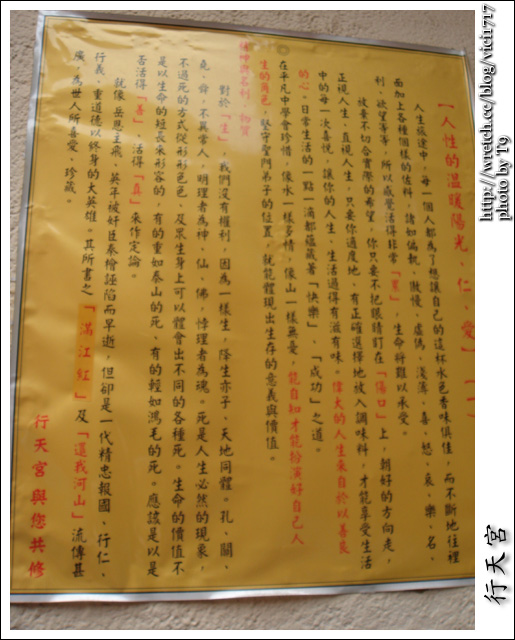 【人性的溫暖陽光、仁、愛】(一)
人生旅途中，每一個人都為了想讓自己的這杯水色香味俱佳，而不斷地往裡
面加上各種個樣的佐料，諸如偏執、傲慢、虛偽、淺薄、喜、怒、哀、樂、名、
利、欲望等等，所以感覺活得非常「累」，生命將難以承受。
放棄不切合實際的希望，你只要不把眼睛釘在「傷口」上，朝好的方向走，
正視人生、直視人生，只要你適度地、有正確選擇地放入調味料，才能享受生活
中的每一次喜悅，讓你的人生、生活過得有滋有味。偉大的人生來自於以善良
的心，日常生活的一點一滴都蘊藏著「快樂」、「成功」之道。
在平凡中學會珍惜，像水一樣多情，像山一樣無憂，能自知才能扮演好自己人
生的角色，堅守聖門弟子的位置，就能體現出生存的意義與價值。
對於「生」，我們沒有權利，因為一樣生，降生亦子。天地同體。孔、關、
堯、舜，不異常人，明理者為神、仙、佛，悖理者為魂。死是人生必然的現象，
不過死的方式從形形色色，及眾生身上可以體會出不同的各種死。生命的價值不
是以生命的短長來形容的，有的重如泰山的死、有的輕如鴻毛的死。應該是以是
否活得「善」，活得「真」來作定論。
就像岳恩主飛，英年被奸臣秦檜誣陷而早逝，但卻是一代精忠報國、行仁、
行義、重道德以終身的大英雄。其所書之「滿江紅」及「還我河山」流傳甚
廣，為世人所喜愛、珍藏。
行天宮 與您共修
http://wretch.cc/blog/vicii717
photo by T9
行天宮